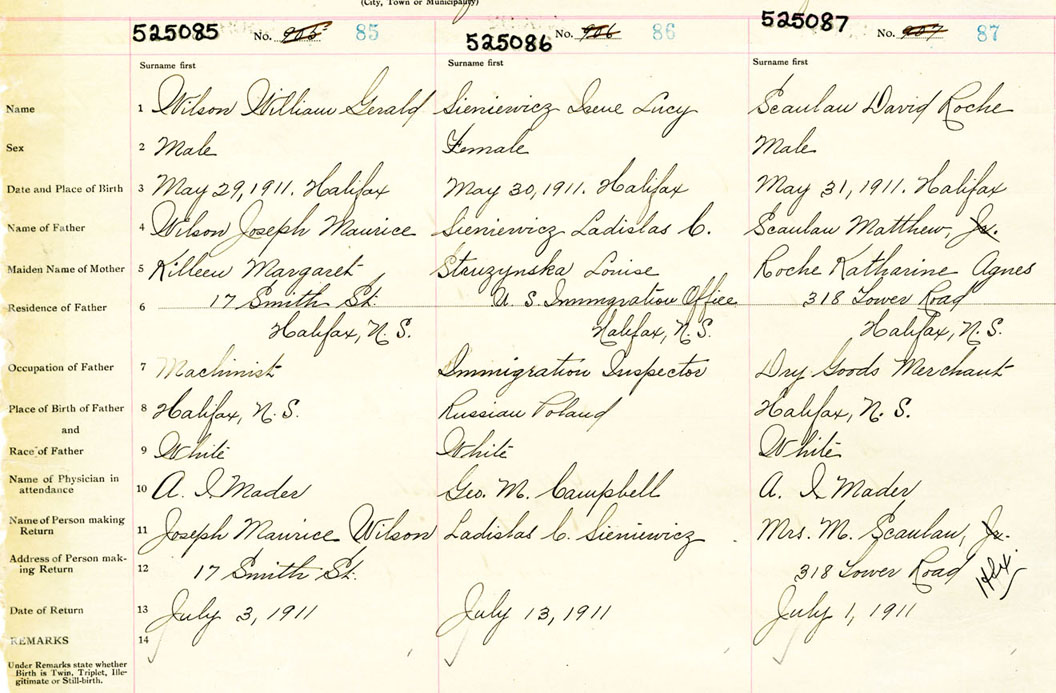 (City, Town or Municipality)
525085 No. 905 85 525086 No. 906 86 525087 No. 907 87
Surname first Surname first Surname first
Name 1 Wilson William Gerald Sieniewicz Irene Lucy Scanlan David Roche
Sex 2 Male Female Male
Date and Place of Birth 3 May 29, 1911. Halifax May 30, 1911. Halifax May 31, 1911. Halifax
Name of Father 4 Wilson Joseph Maurice Sieniewicz Ladislas C. Scanlan Matthew, Jr.
Maiden Name of Mother 5 Killeen Margaret Struzynska Louise Roche Katharine Agnes
Residence of Father 6 17 Smith St. U. S. Immigration Office 318 Lower Road
Halifax, N.S. Halifax, N.S. Halifax, N.S.
Occupation of Father 7 Machinist Immigration Inspector Dry Goods Merchant
Place of Birth of Father 8 Halifax, N.S. Russian Poland Halifax, N.S.
and
Race of Father 9 White White White
Name of Physician in
attendance 10 A. I. Mader Geo. M. Campbell A. I. Mader
Name of Person making
Return 11 Joseph Maurice Wilson Ladislas C. Sieniewicz Mrs. M. Scanlan, Jr.
Address of Person mak-
ing Return 12 17 Smith St. 318 Lower Road Hfx.
Date of Return 13 July 3, 1911 July 13, 1911 July 1, 1911
REMARKS 14
Under Remarks state whether
Birth is Twin, Triplet, Ille-
gitimate or Still-birth.